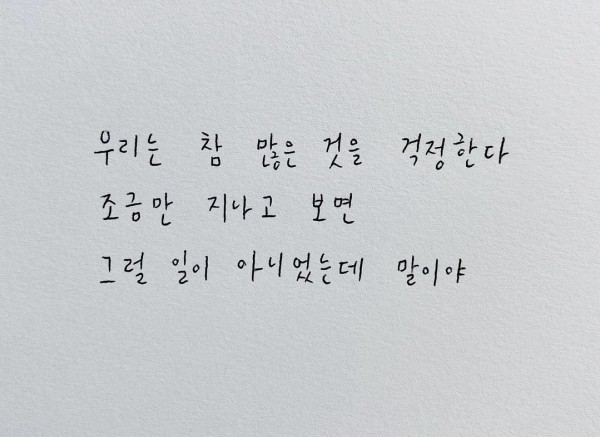 우리는 참 많은 것을 걱정한다
조금만 지나고 보면
그럴 일이 아니었는데 말이야